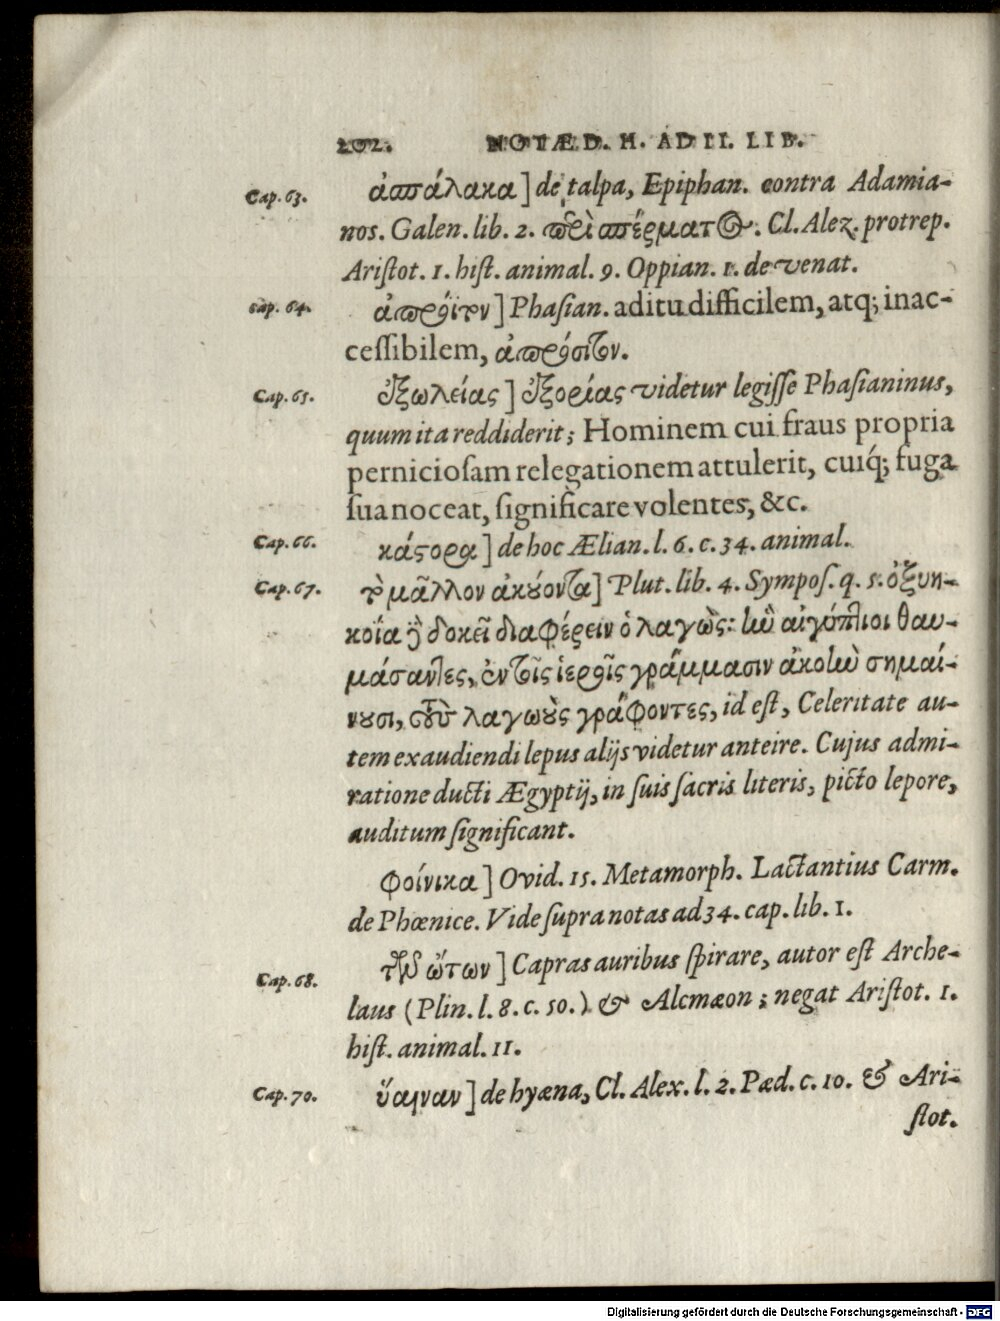 202. NOTÆ D. H. AD II. LIB.
Cap. 63. ἀσπάλακα] de talpa, Epiphan. contra Adamia-
nos. Galen. lib. 2. περὶ σπέρματος. Cl. Alex. protrep.
Aristot. 1. hist. animal. 9. Oppian. 1. de venat.
cap. 64. ἀπρόϊτον] Phasian. aditu difficilem, atq; inac-
cessibilem, ἀπρόσιτον.
Cap. 65. ἐξωλείας] ἐξορίας videtur legisse Phasianinus,
quum ita reddiderit; Hominem cui fraus propria
perniciosam relegationem attulerit, cuiq́; fuga
sua noceat, significare volentes, &c.
Cap. 66. κάστορα] de hoc Ælian. l. 6. c. 34. animal.
Cap. 67. τὸ μᾶλλον ἀκούοντα] Plut. lib. 4. Sympos. q. 5. ὀξυη-
κοΐα ἢ δοκεῖ διαφέρειν ὁ λαγωὸς: ἣν αἰγύπτιοι θαυ-
μάσαντες, ἐν τοῖς ἱεροῖς γράμμασιν ἀκοὴν σημαί-
νουσι, τοὺς λαγωοὺς γράφοντες, id est, Celeritate au-
tem exaudiendi lepus alijs videtur anteire. Cujus admi-
ratione ducti Ægyptij, in suis sacris literis, picto lepore,
auditum significant.
φοίνικα] Ovid. 15. Metamorph. Lactantius Carm.
de Phœnice. Vide supra notas ad 34. cap. lib. 1.
Cap. 68. τῶν ὤτων] Capras auribus spirare, autor est Arche-
laus (Plin. l. 8. c. 50.) & Alcmæon; negat Aristot. 1.
hist. animal. 11.
Cap. 70. ὕαιναν] de hyæna, Cl. Alex. l. 2. Pæd. c. 10. & Ari-
stot.
Digitalisierung gefördert durch die Deutsche Forschungsgemeinschaft - DFG